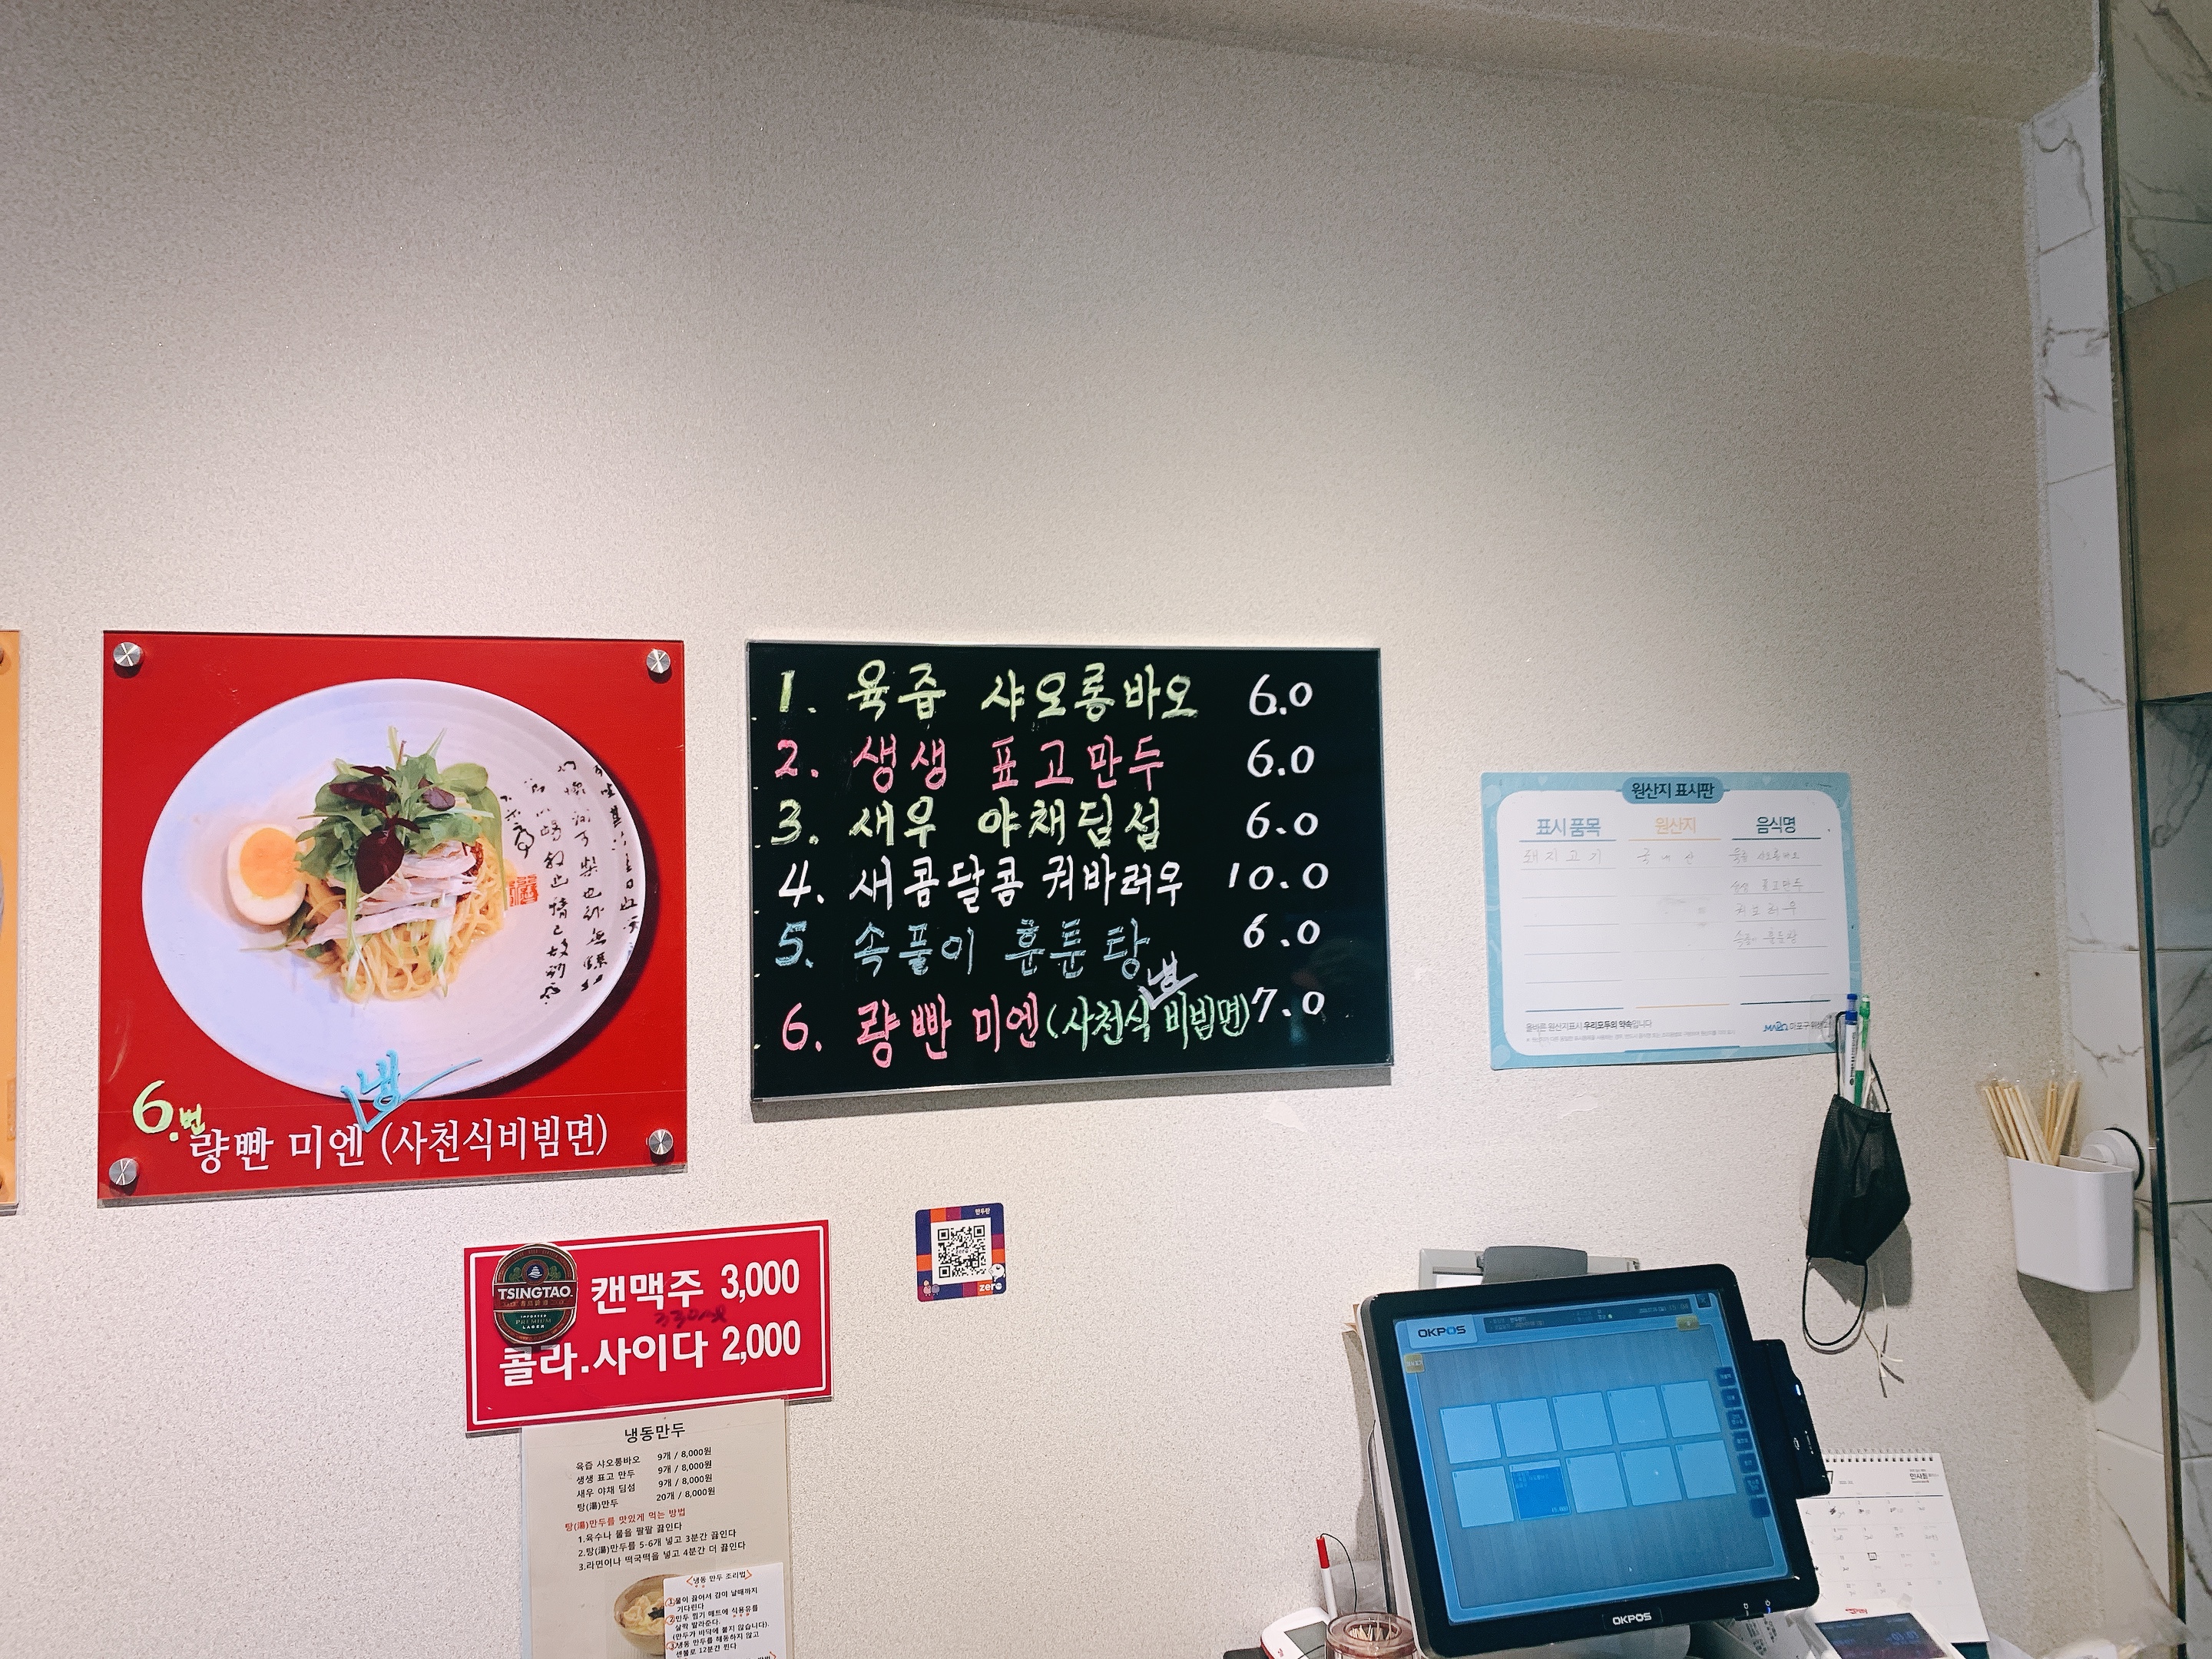 1. 육즙 샤오롱바오 6.0
2. 생생 표고만두 6.0
3. 새우 야채딤섬 6.0
4. 새콤달콤 궈바러우 10.0
5. 속풀이 훈툰탕 6.0
냉
6. 량빤 미엔(사천식 비빔면) 7.0
냉
6.번
량빤 미엔 (사천식비빔면)
TSINGTAO
PREMIUM
LAGER
캔맥주 3,000
콜라.사이다 2,000
만두란
zero
냉동만두
육즙 샤오롱바오 9개 / 8,000원
생생 표고 만두 9개 / 8,000원
새우 야채 딤섬 9개 / 8,000원
탕(湯)만두 20개 / 8,000원
탕(湯)만두를 맛있게 먹는 방법
1.육수나 물을 팔팔 끓인다
2.탕(湯)만두를 5-6개 넣고 3분간 끓인다
3.라면이나 떡국떡을 넣고 4분간 더 끓인다
<냉동 만두 조리법>
①물이 끓어서 김이 날때까지
기다린다
②만두 찜기 매트에 식용유를
살짝 발라준다.
(만두가 바닥에 붙지 않습니다).
③냉동 만두를 해동하지 않고
센불로 12분간 찐다
원산지 표시판
표시 품목 원산지 음식명
돼지고기 국내산 육즙 샤오롱바오
생생 표고만두
궈바러우
속풀이 훈툰탕
올바른 원산지표시 우리모두의 약속입니다
마포구
OKPOS
OKPOS